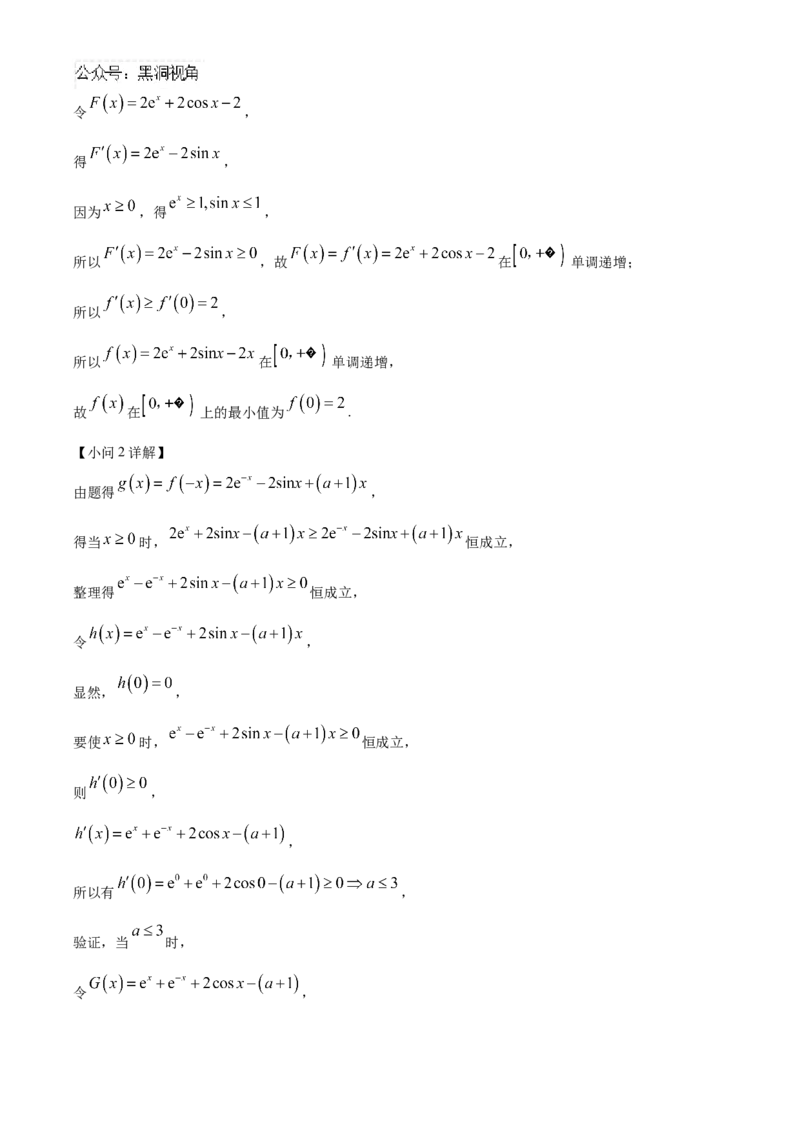 公众号：黑洞视角
令 F(x)=2eˣ+2cos x−2，
得 F′(x)=2eˣ−2sin x，
因为 x≥0，得 eˣ≥1,sin x≤1，
所以 F′(x)=2eˣ−2sin x≥0，故 F(x)=f′(x)=2eˣ+2cos x−2 在[0,+�) 单调递增；
所以 f′(x)≥f′(0)=2，
所以 f(x)=2eˣ+2sinx−2x 在[0,+�) 单调递增，
故 f(x) 在[0,+�) 上的最小值为 f(0)=2.
【小问 2 详解】
由题得 g(x)=f(−x)=2e⁻ˣ−2sinx+(a+1)x，
得当 x≥0 时，2eˣ+2sinx−(a+1)x≥2e⁻ˣ−2sinx+(a+1)x 恒成立，
整理得 eˣ−e⁻ˣ+2sin x−(a+1)x≥0 恒成立，
令 h(x)=eˣ−e⁻ˣ+2sin x−(a+1)x，
显然，h(0)=0，
要使 x≥0 时，eˣ−e⁻ˣ+2sin x−(a+1)x≥0 恒成立，
则 h′(0)≥0，
h′(x)=eˣ+e⁻ˣ+2cos x−(a+1)，
所以有 h′(0)=e⁰+e⁰+2cos0−(a+1)≥0⇒a≤3，
验证，当 a≤3 时，
令 G(x)=eˣ+e⁻ˣ+2cosx−(a+1)，